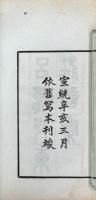 宣統辛亥三月
依舊寫本刊竣